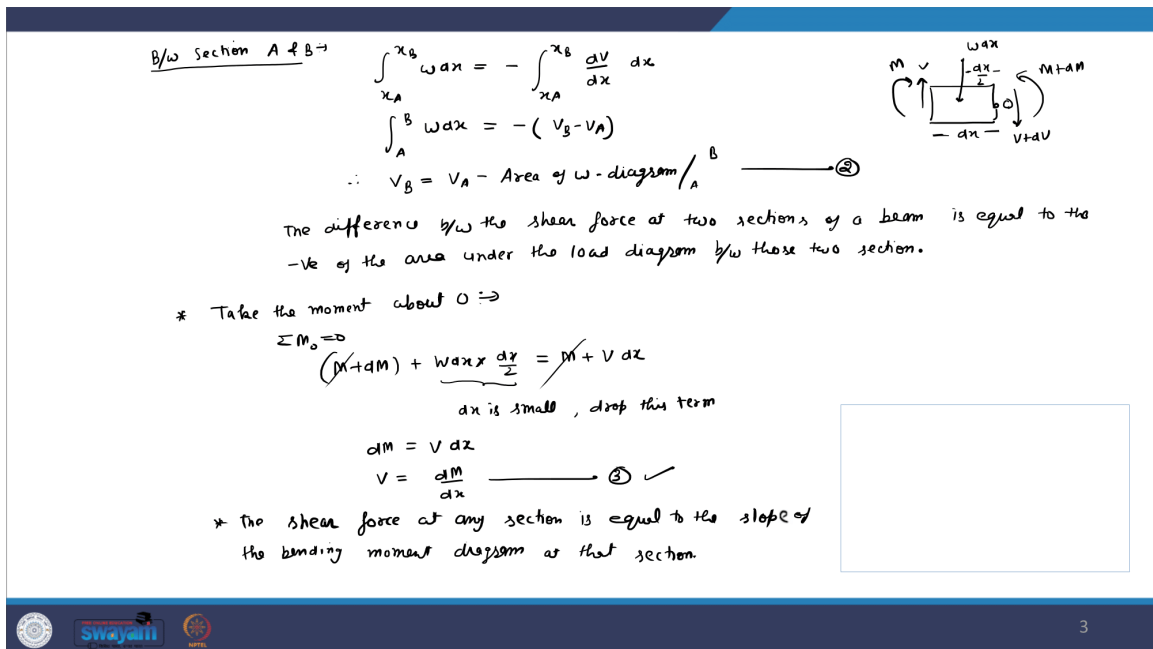 B/w Section A & B→
∫_{xA}^{xB} w dx = - ∫_{xA}^{xB} dV/dx dx
∫_A^B w dx = - ( V_B - V_A )
∴ V_B = V_A - Area of w-diagram /_A^B ——— ②
The difference b/w the shear force at two sections of a beam is equal to the
-ve of the area under the load diagram b/w those two section.
* Take the moment about O ⇒
ΣM_o = 0
(M + dM) + w dx × dx/2 = M + V dx
dx is small, drop this term
dM = V dx
V = dM/dx ——— ③ ✓
* The shear force at any section is equal to the slope of
the bending moment diagram at that section.
w dx
M V dx/2 M+dM
O
dx V+dV
swayam
NPTEL
3